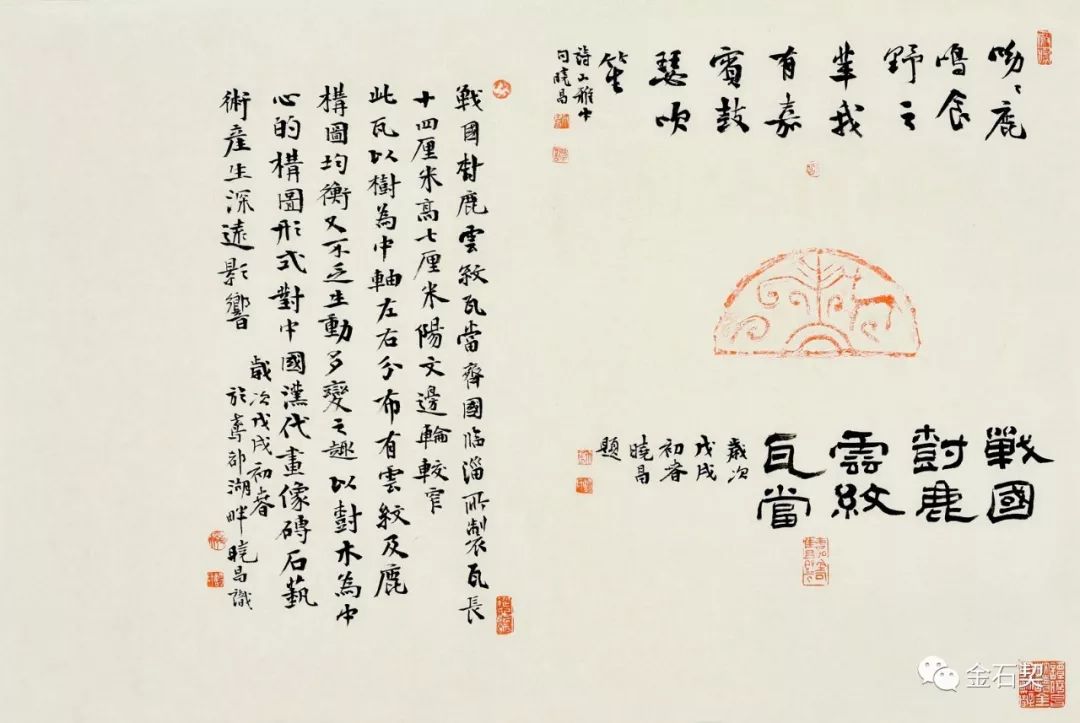 呦〻鹿
鳴食
野之
苹我
有嘉
賓鼓
瑟吹
笙
詩小雅中
句曉昌
戰國
樹鹿
雲紋
瓦當
歲次
戊戌
初春
曉昌
題
戰國樹鹿雲紋瓦當齊國臨淄所製瓦長
十四厘米高七厘米陽文邊輪較窄
此瓦以樹為中軸左右分布有雲紋及鹿
構圖均衡又不乏生動多變之趣以樹木為中
心的構圖形式對中國漢代畫像磚石藝
術產生深遠影響
歲次戊戌初春
於鳶都湖畔曉昌識
金石契